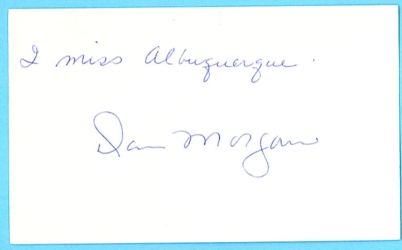 I miss Albuquerque.
Dan Morgan